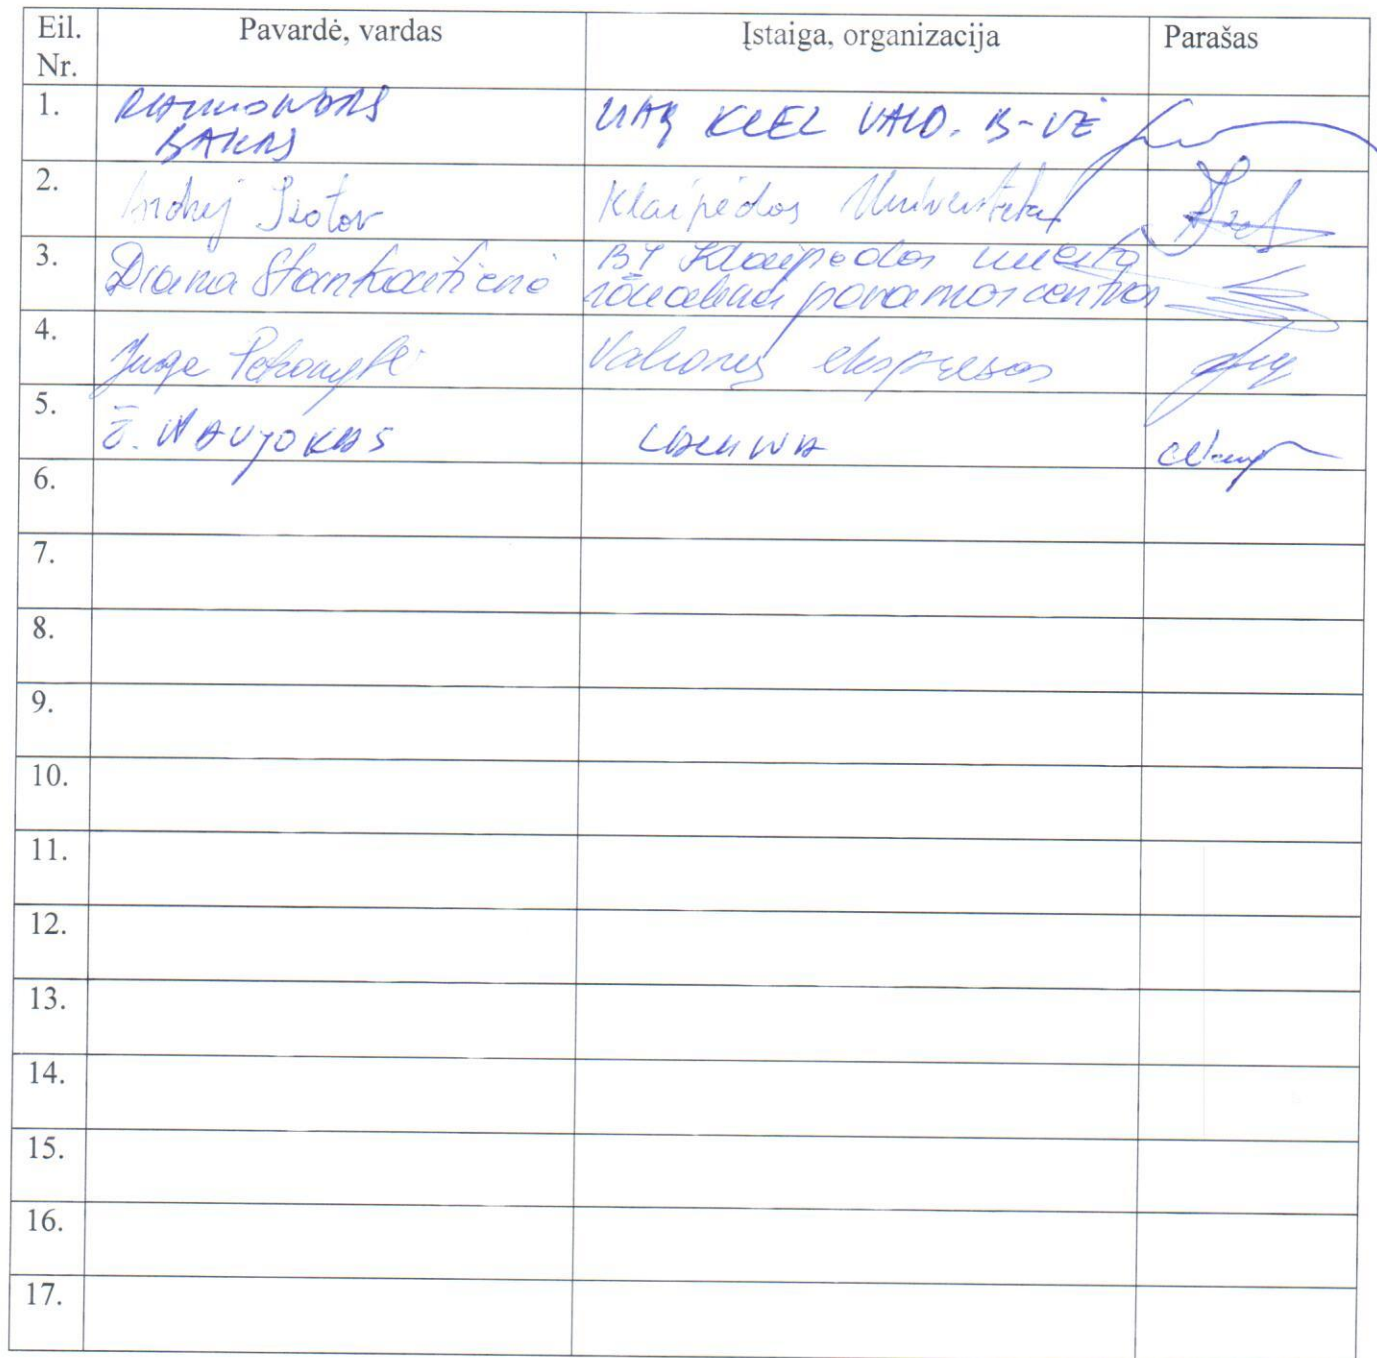 Eil. Nr. Pavardė, vardas Įstaiga, organizacija Parašas
1. BAKAS UAB VALD. B-VĖ
2. Andrej Klaipėdos Universitetas
3. Diana Stankaitienė BĮ Klaipėdos miesto
socialinės paramos centras
4. Vakarų ekspresas
5. Č. NAUJOKAS
6.
7.
8.
9.
10.
11.
12.
13.
14.
15.
16.
17.